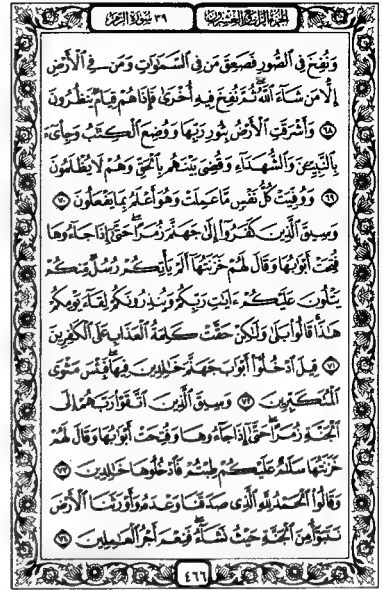 الجزء الرابع والعشرون
٣٩ سورة الزمر
وَنُفِخَ فِي الصُّورِ فَصَعِقَ مَن فِي السَّمَٰوَاتِ وَمَن فِي الْأَرْضِ
إِلَّا مَن شَاءَ اللَّهُ ثُمَّ نُفِخَ فِيهِ أُخْرَىٰ فَإِذَا هُمْ قِيَامٌ يَنظُرُونَ
٦٨ وَأَشْرَقَتِ الْأَرْضُ بِنُورِ رَبِّهَا وَوُضِعَ الْكِتَٰبُ وَجِاْىٓءَ
بِالنَّبِيِّـۧنَ وَالشُّهَدَاءِ وَقُضِيَ بَيْنَهُم بِالْحَقِّ وَهُمْ لَا يُظْلَمُونَ
٦٩ وَوُفِّيَتْ كُلُّ نَفْسٍ مَّا عَمِلَتْ وَهُوَ أَعْلَمُ بِمَا يَفْعَلُونَ ٧٠
وَسِيقَ الَّذِينَ كَفَرُوا إِلَىٰ جَهَنَّمَ زُمَرًا حَتَّىٰ إِذَا جَاءُوهَا
فُتِحَتْ أَبْوَٰبُهَا وَقَالَ لَهُمْ خَزَنَتُهَا أَلَمْ يَأْتِكُمْ رُسُلٌ مِّنكُمْ
يَتْلُونَ عَلَيْكُمْ ءَايَٰتِ رَبِّكُمْ وَيُنذِرُونَكُمْ لِقَاءَ يَوْمِكُمْ
هَٰذَا قَالُوا بَلَىٰ وَلَٰكِنْ حَقَّتْ كَلِمَةُ الْعَذَابِ عَلَى الْكَٰفِرِينَ
٧١ قِيلَ ادْخُلُوا أَبْوَٰبَ جَهَنَّمَ خَٰلِدِينَ فِيهَا فَبِئْسَ مَثْوَى
الْمُتَكَبِّرِينَ ٧٢ وَسِيقَ الَّذِينَ اتَّقَوْا رَبَّهُمْ إِلَى
الْجَنَّةِ زُمَرًا حَتَّىٰ إِذَا جَاءُوهَا وَفُتِحَتْ أَبْوَٰبُهَا وَقَالَ لَهُمْ
خَزَنَتُهَا سَلَٰمٌ عَلَيْكُمْ طِبْتُمْ فَادْخُلُوهَا خَٰلِدِينَ ٧٣
وَقَالُوا الْحَمْدُ لِلَّهِ الَّذِي صَدَقَنَا وَعْدَهُ وَأَوْرَثَنَا الْأَرْضَ
نَتَبَوَّأُ مِنَ الْجَنَّةِ حَيْثُ نَشَاءُ فَنِعْمَ أَجْرُ الْعَٰمِلِينَ ٧٤
٤٦٦